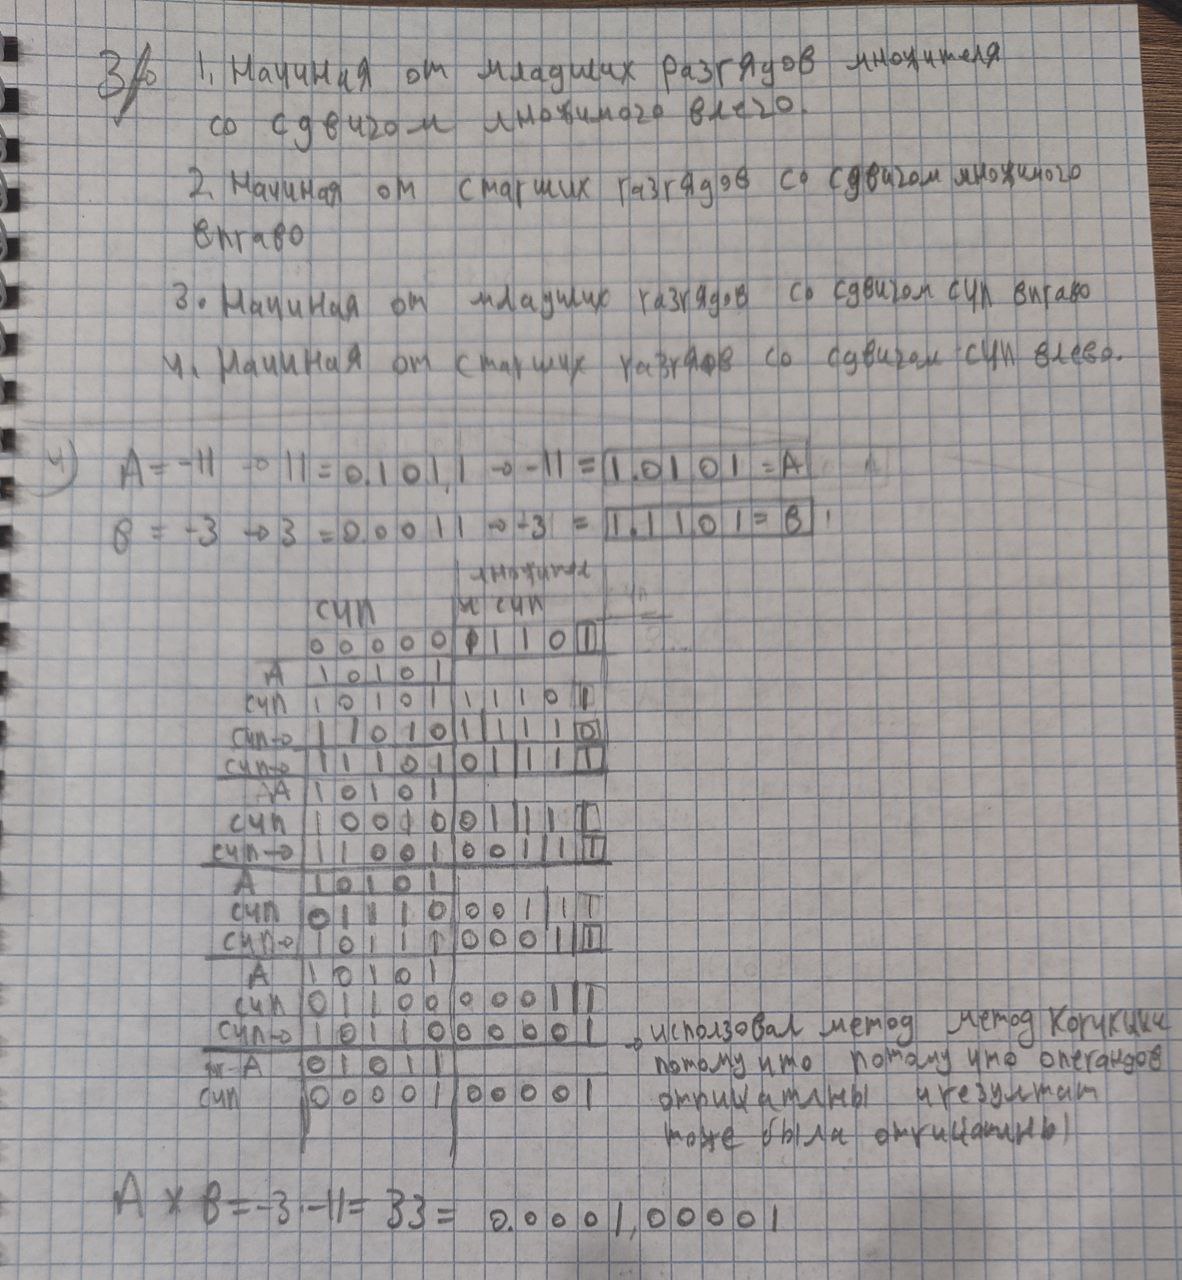 3)
1. Начиная от младших разрядов множителя
со сдвигом множимого влево.
2. Начиная от старших разрядов со сдвигом множимого
вправо
3. Начиная от младших разрядов со сдвигом СЧП вправо
4. Начиная от старших разрядов со сдвигом СЧП влево.
4) A = -11 → 11 = 0.1011 → -11 = 1.0101 = A
B = -3 → 3 = 0.0011 → -3 = 1.1101 = B
СЧП и СЧП
0 0 0 0 0 1 1 1 0 1
A 1 0 1 0 1
СЧП 1 0 1 0 1 1 1 1 0 1
СЧП→ 1 1 0 1 0 1 1 1 1 0
СЧП→ 1 1 1 0 1 0 1 1 1 1
A 1 0 1 0 1
СЧП 1 0 0 1 0 0 1 1 1 1
СЧП→ 1 1 0 0 1 0 0 1 1 1
A 1 0 1 0 1
СЧП 0 1 1 1 0 0 0 1 1 1
СЧП→ 1 0 1 1 1 0 0 0 1 1
A 1 0 1 0 1
СЧП 0 1 1 0 0 0 0 0 1 1
СЧП→ 1 0 1 1 0 0 0 0 0 1
-A 0 1 0 1 1
СЧП 0 0 0 0 1 0 0 0 0 1
→ использовал метод метод Корикции
потому что потому что операндов
отрицатлны и резулмат
тоже была отрицатлны
A × B = -3 · -11 = 33 = 0.0001,00001